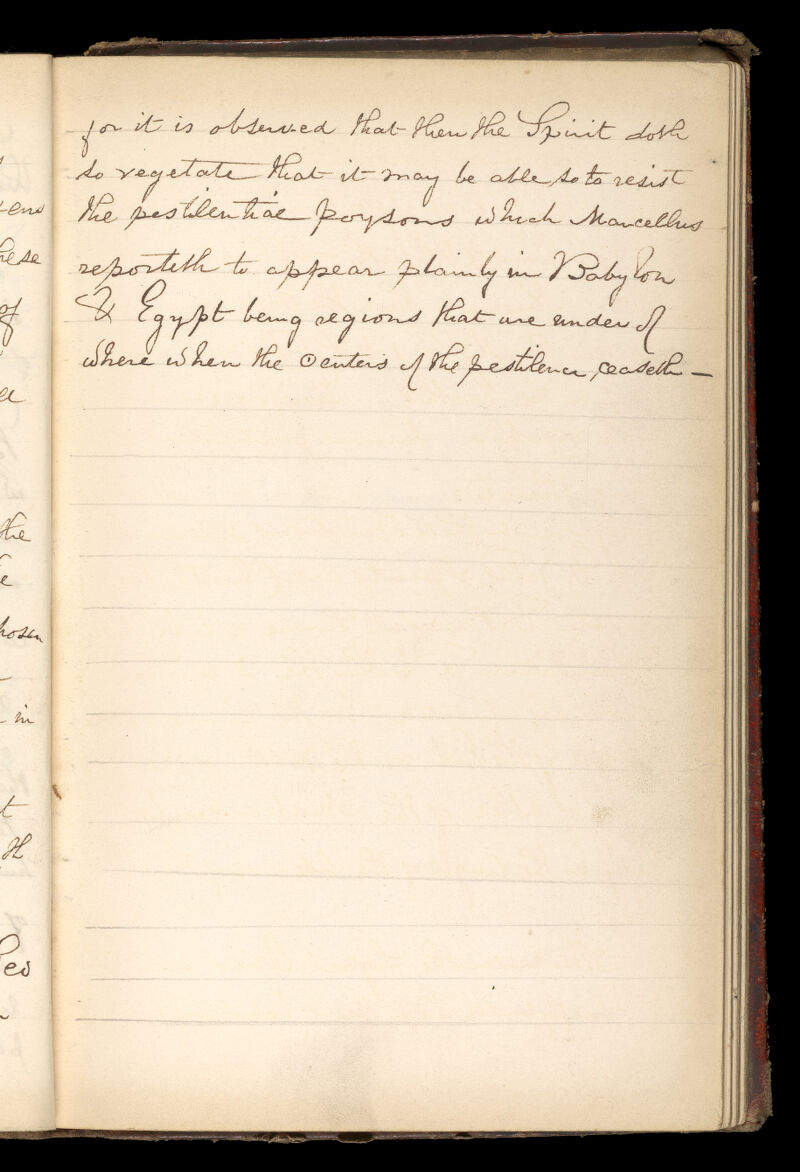 for it is observed that then the Spirit doth
so vegetate that it may be able so to resist
the pestilential poysons which Marcellus
reporteth to appear plainly in Babylon
& Egypt being regions that are under ♌
where when the ☉ enters ♌ the pestilence ceaseth —
ens
hese
of
the
hosen
in
t
th
Leo